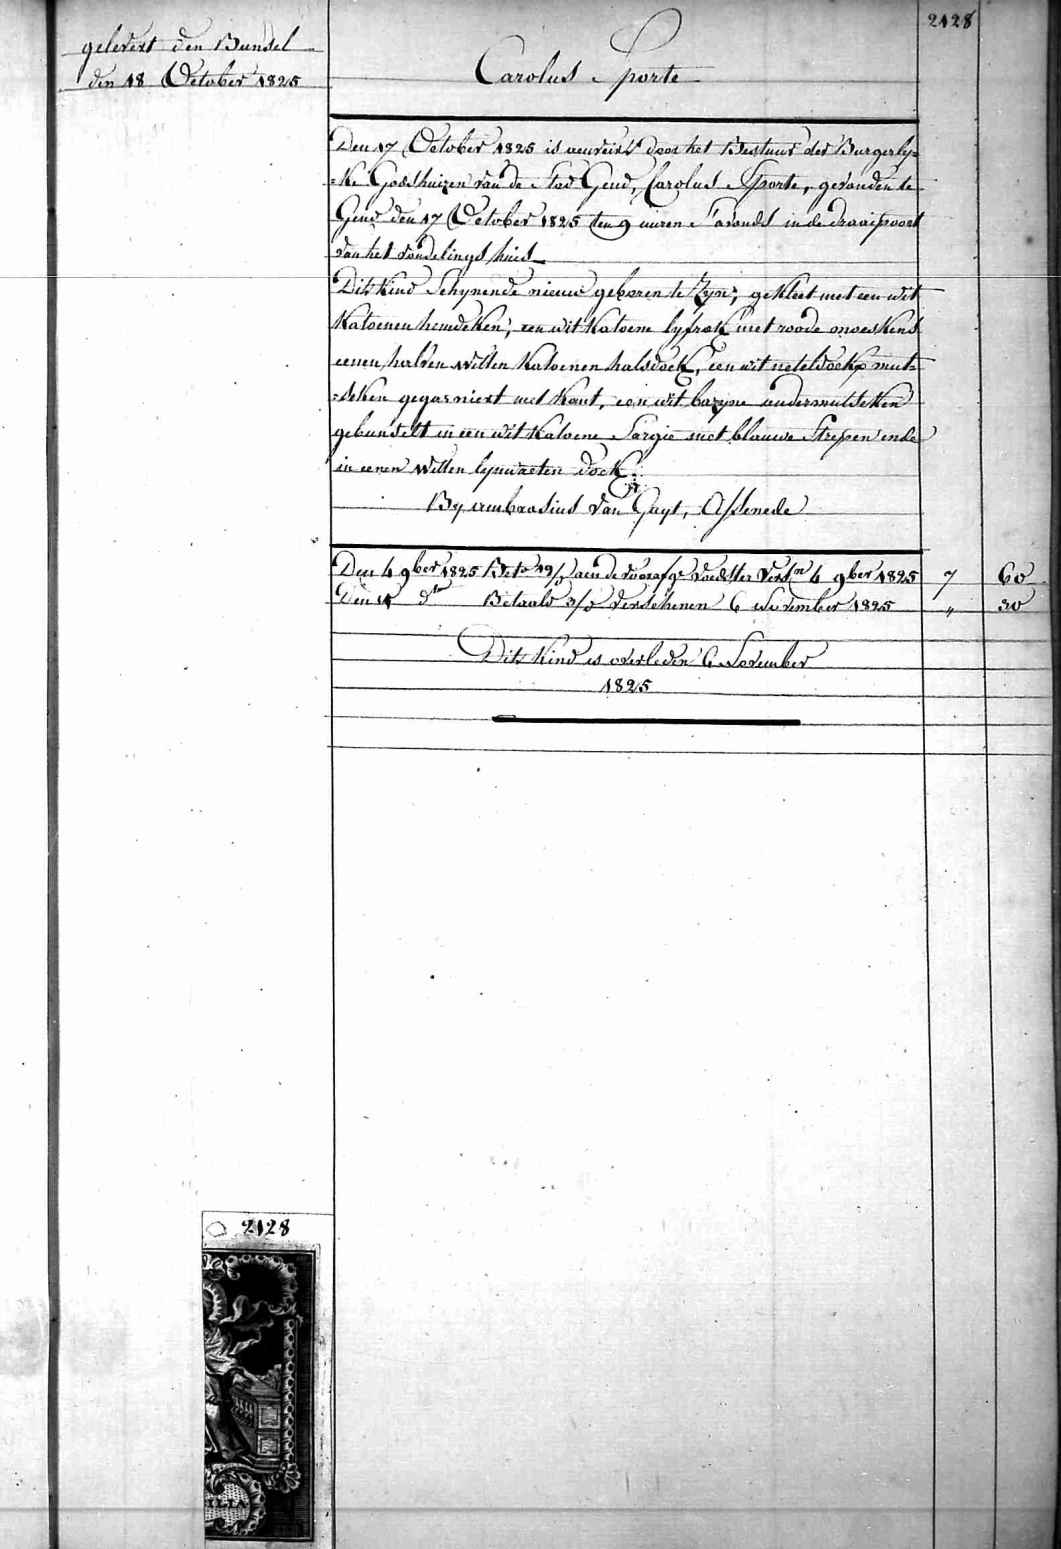 2128
gelevert den Bundel
den 18 October 1825
Carolus Sporte
Den 17 October 1825 is aenveird door het Bestuur der Burgerly=
=ke Godshuizen van de Stad Gend, Carolus Sporte, gevonden te
Gend den 17 October 1825 ten 9 uuren S'avonds in de draaipoort
van het vondelings huis
Dit Kind Schynende nieuw geboren te Zyn, gekleet met een wit
Katoenen hemdeken, een wit Katoene lyfrok met roode moeskens
eenen halven witten Katoenen halsdoek, een wit neteldoek mut=
=seken gegarniert met Kant, een wit bazyne ondermutseken
gebundelt in een wit Katoene Sargie met blauwe Strepen ende
in eenen witten lynwaeten doek
By ambrosius van Guyt, Assenede
Den 4 9ber 1825 Bet 19/ aen de voorafge voedster Vers 6 9ber 1825 7 60
Den 4 do Betaald 3/ verschenen 6 November 1825 " 30
Dit Kind is overleden 6 November
1825
2128